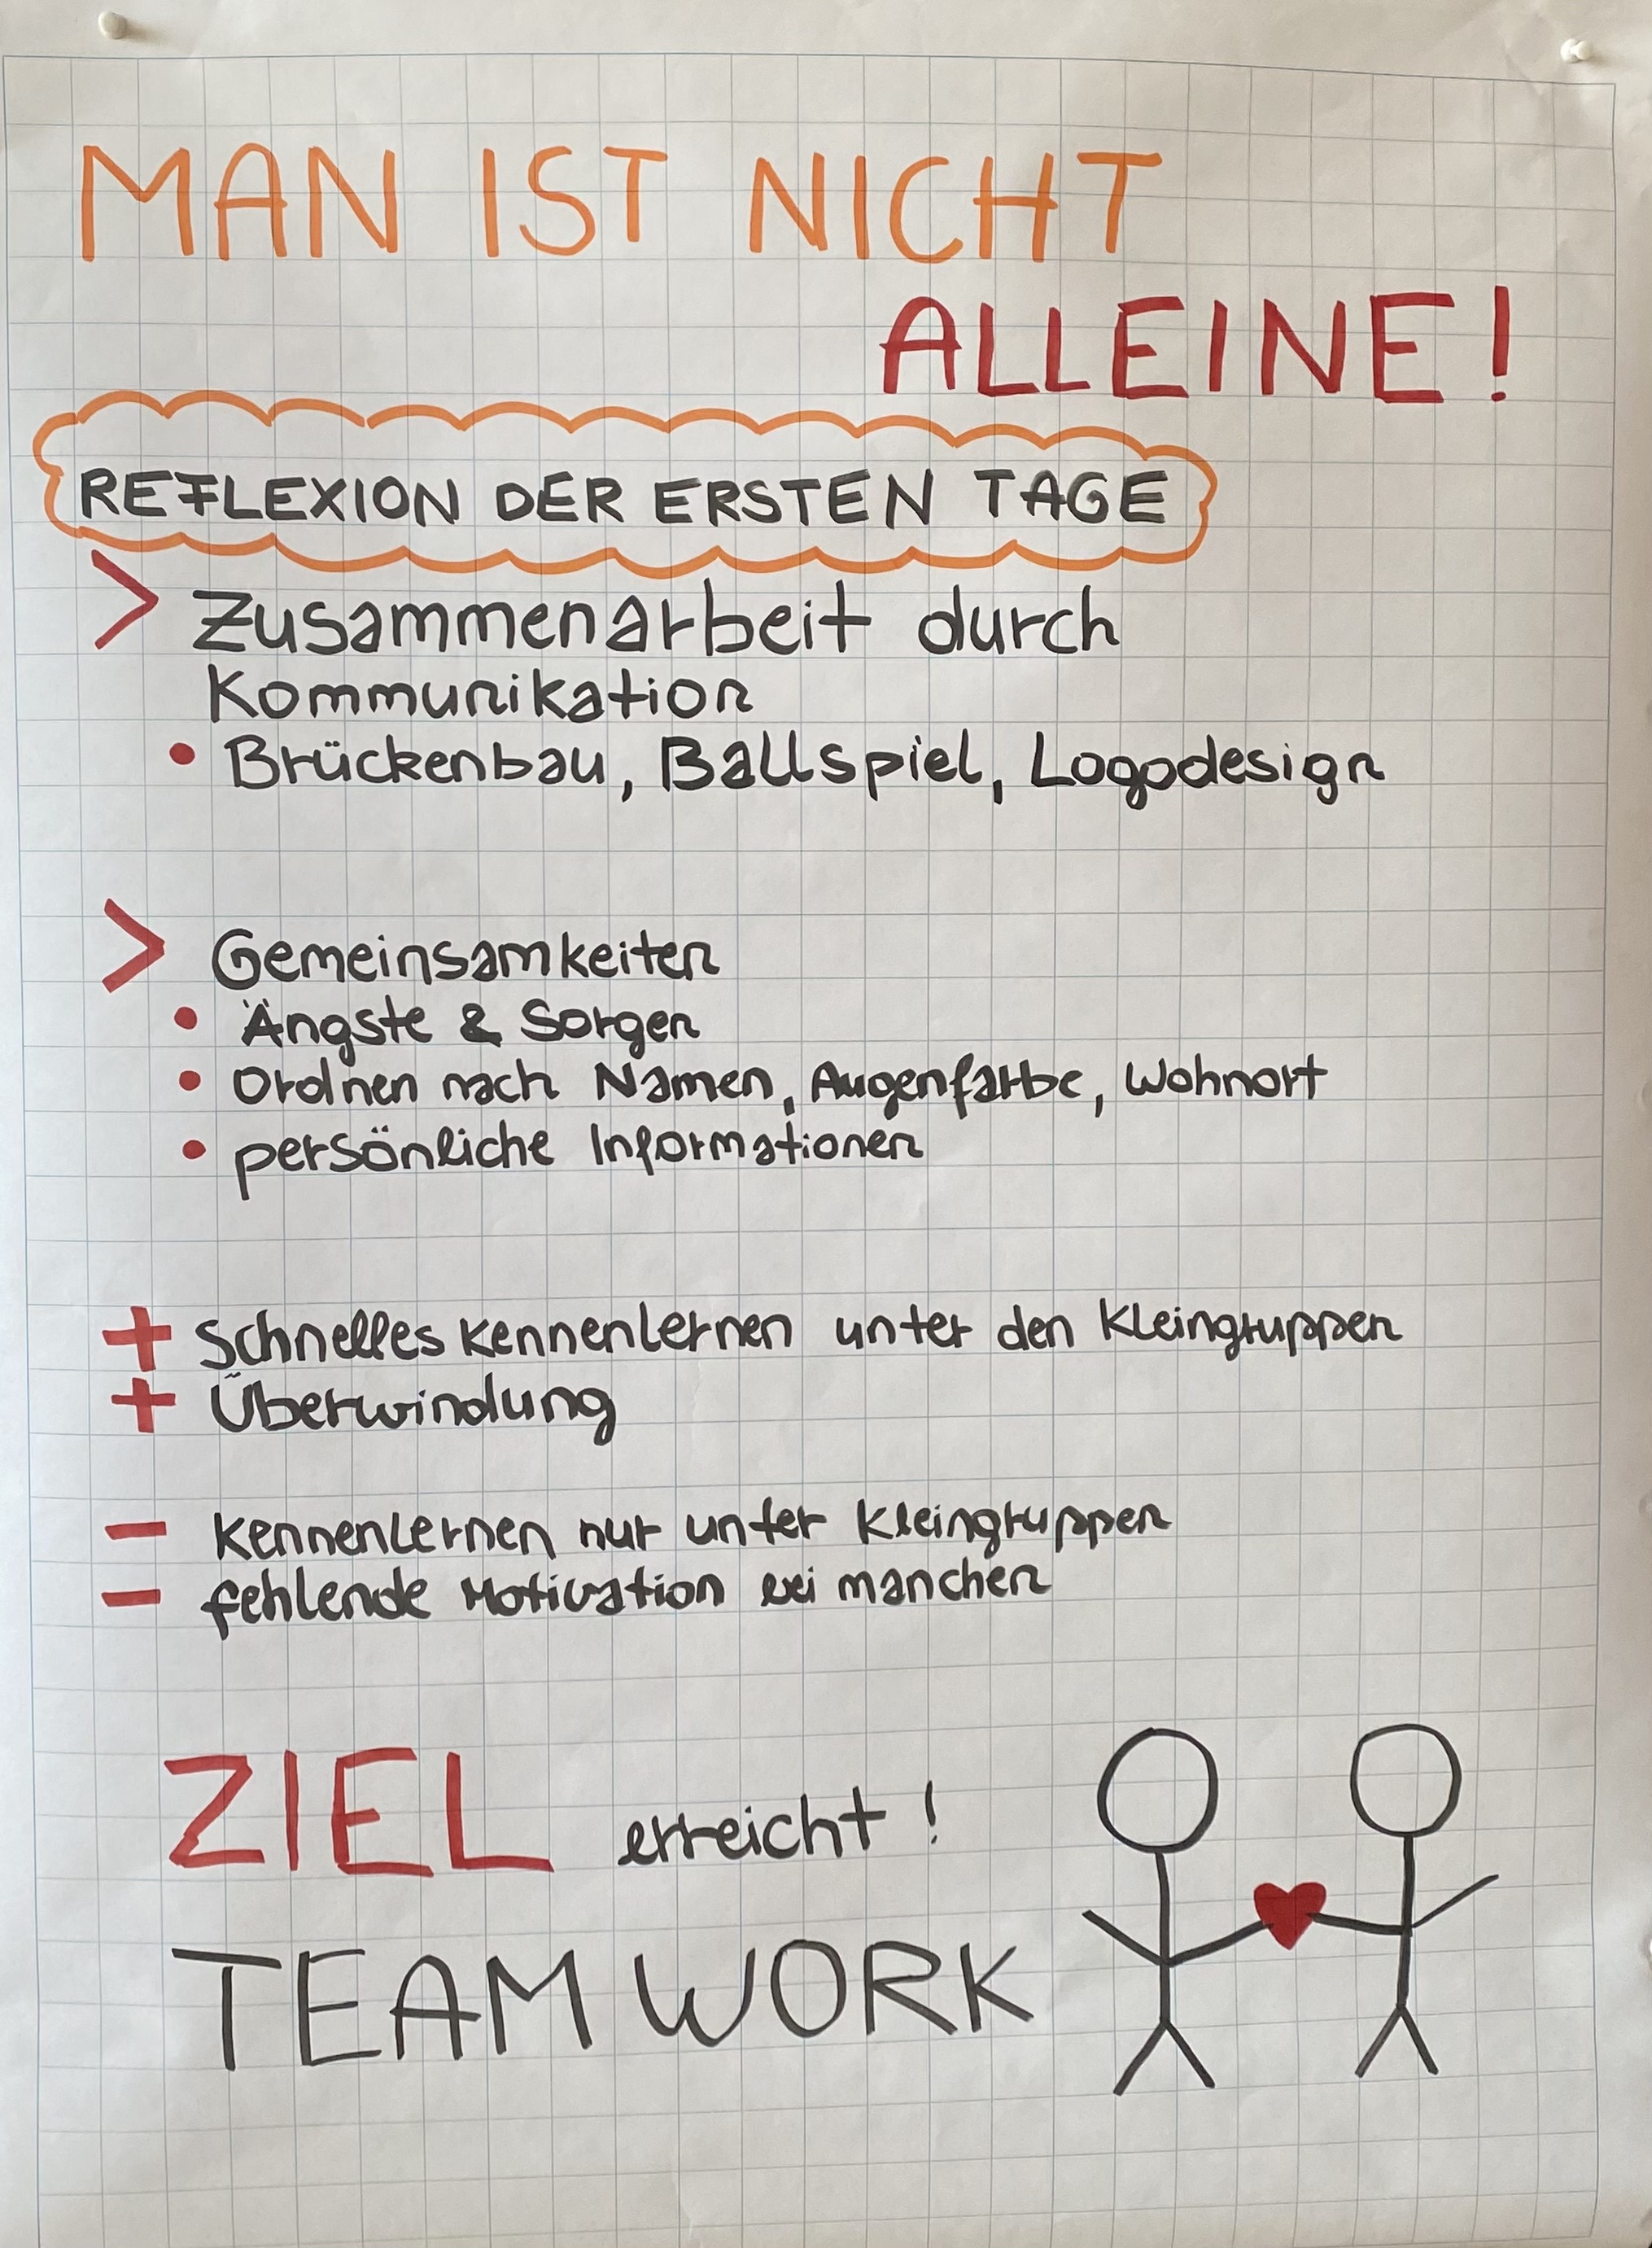 MAN IST NICHT
ALLEINE!
REFLEXION DER ERSTEN TAGE
> Zusammenarbeit durch
Kommunikation
• Brückenbau, Ballspiel, Logodesign
> Gemeinsamkeiten
• Ängste & Sorgen
• Ordnen nach Namen, Augenfarbe, Wohnort
• persönliche Informationen
+ Schnelles Kennenlernen unter den Kleingruppen
+ Überwindung
− Kennenlernen nur unter Kleingruppen
− fehlende Motivation bei manchen
ZIEL erreicht!
TEAMWORK